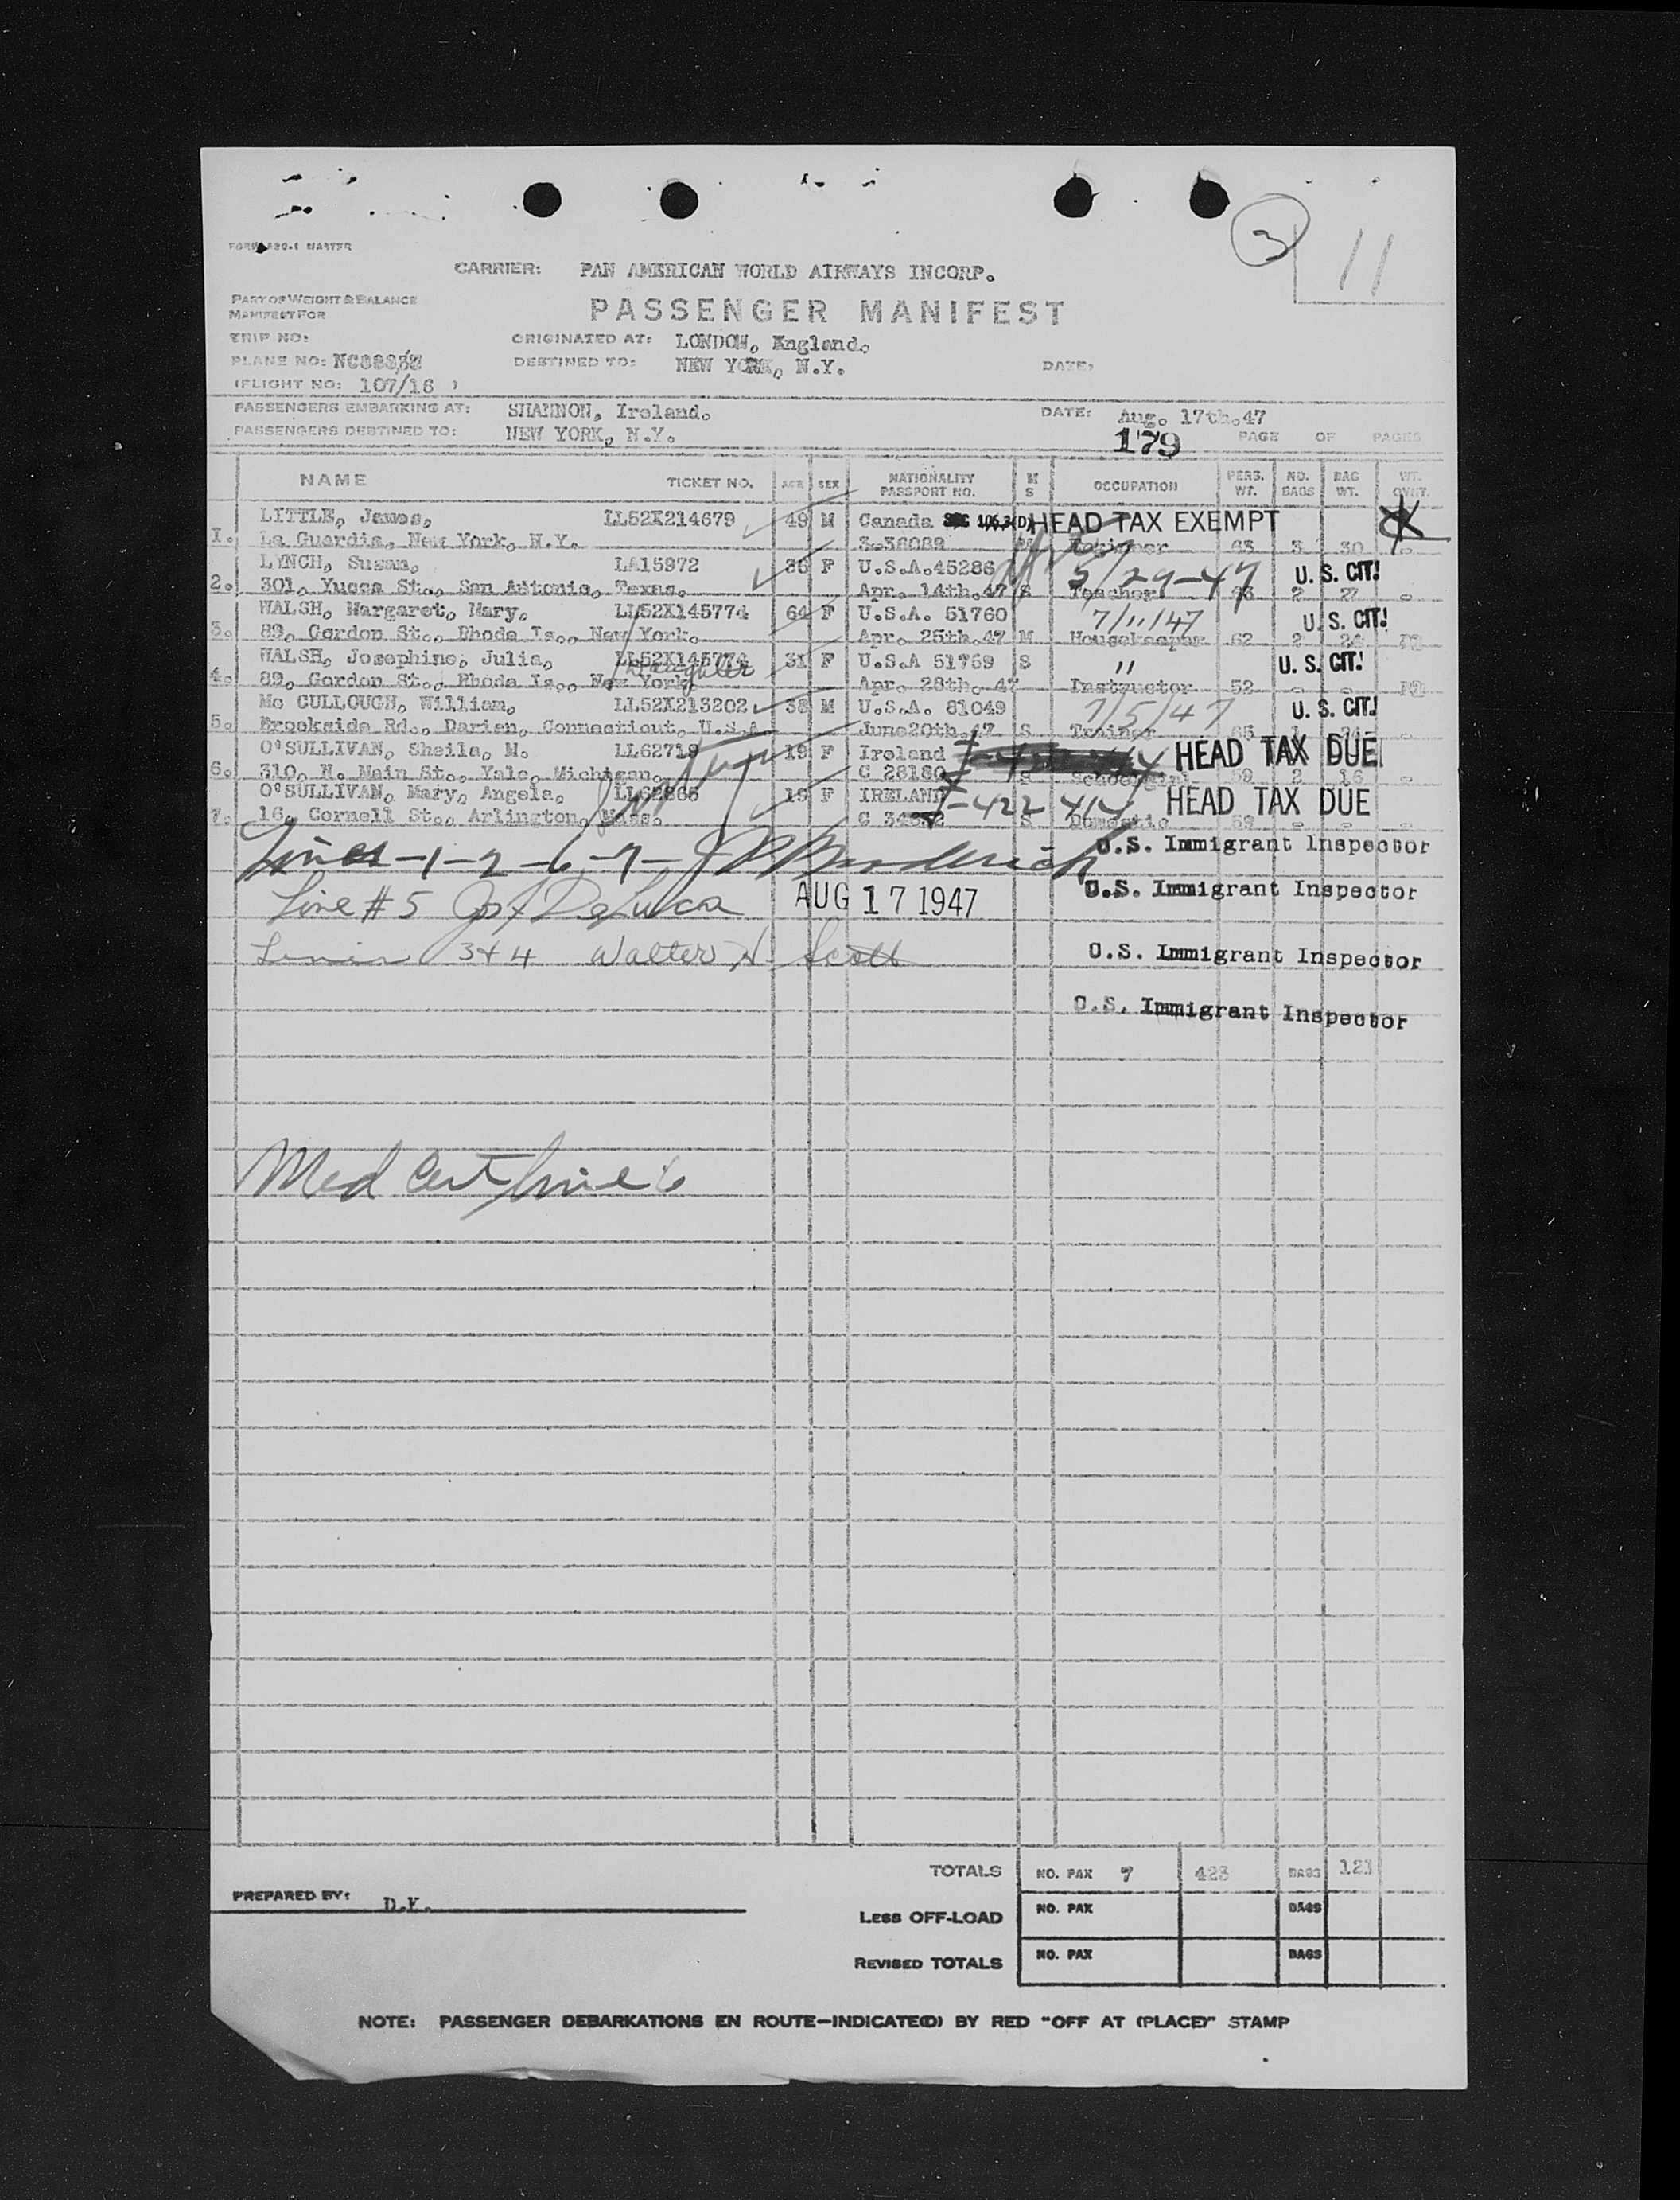 3
11
FORM MASTER
CARRIER: PAN AMERICAN WORLD AIRWAYS INCORP.
PART OF WEIGHT & BALANCE
MANIFEST FOR
PASSENGER MANIFEST
TRIP NO: ORIGINATED AT: LONDON, England.
PLANE NO: DESTINED TO: NEW YORK, N.Y. DATE:
(FLIGHT NO: 107/16 )
PASSENGERS EMBARKING AT: SHANNON, Ireland. DATE: Aug. 17th.47
PASSENGERS DESTINED TO: NEW YORK, N.Y. 179 PAGE OF PAGES
NAME TICKET NO. AGE SEX NATIONALITY PASSPORT NO. M S OCCUPATION PERS. WT. NO. BAGS BAG WT. WT. OVHT.
LITTLE, James, LL52X214679 49 M Canada HEAD TAX EXEMPT
1. La Guardia, New York, N.Y. 3-38089 M 63 3 30 -
LYNCH, Susan, LA15972 U.S.A.45286 5/29-47 U.S. CIT!
2. 301, Yucca St., San Antonia, Texas. Apr. 14th.47 S Teacher 2 27 -
WALSH, Margaret, Mary. LL52X145774 64 F U.S.A. 51760 7/11/47 U.S. CIT!
3. 89, Gordon St., Rhode Is., New York. Apr. 25th.47 M Housekeeper 62 2 24
WALSH, Josephine, Julia, LL52X145774 daughter 31 F U.S.A 51759 S " U.S. CIT!
4. 89, Gordon St., Rhode Is., New York. Apr. 28th. 47 Instructor 52 - -
Mc CULLOUGH, William, LL52X213202 38 M U.S.A. 81049 7/5/47 U.S. CIT!
5. Brookside Rd., Darien, Connecticut, U.S.A. June20th.47 S Trainer 65 1
O'SULLIVAN, Sheila, M. LL62719 19 F Ireland HEAD TAX DUE
6. 310, N. Main St., Yale, Michigan, C 28180 S Schoolgirl 59 2 16 -
O'SULLIVAN, Mary, Angela, 19 F IRELAND HEAD TAX DUE
7. 16, Cornell St., Arlington, Mass. S Domestic 59 - - -
Lines -1-2-6-7- Broderick U.S. Immigrant Inspector
Line #5 Jos DeLuca AUG 17 1947 U.S. Immigrant Inspector
Lines 3+4 Walter H Scott U.S. Immigrant Inspector
U.S. Immigrant Inspector
Med Cert line 6
TOTALS NO. PAX 7 423 BAGS 121
PREPARED BY:
LESS OFF-LOAD NO. PAX BAGS
REVISED TOTALS NO. PAX BAGS
NOTE: PASSENGER DEBARKATIONS EN ROUTE—INDICATE(D) BY RED "OFF AT (PLACE)" STAMP